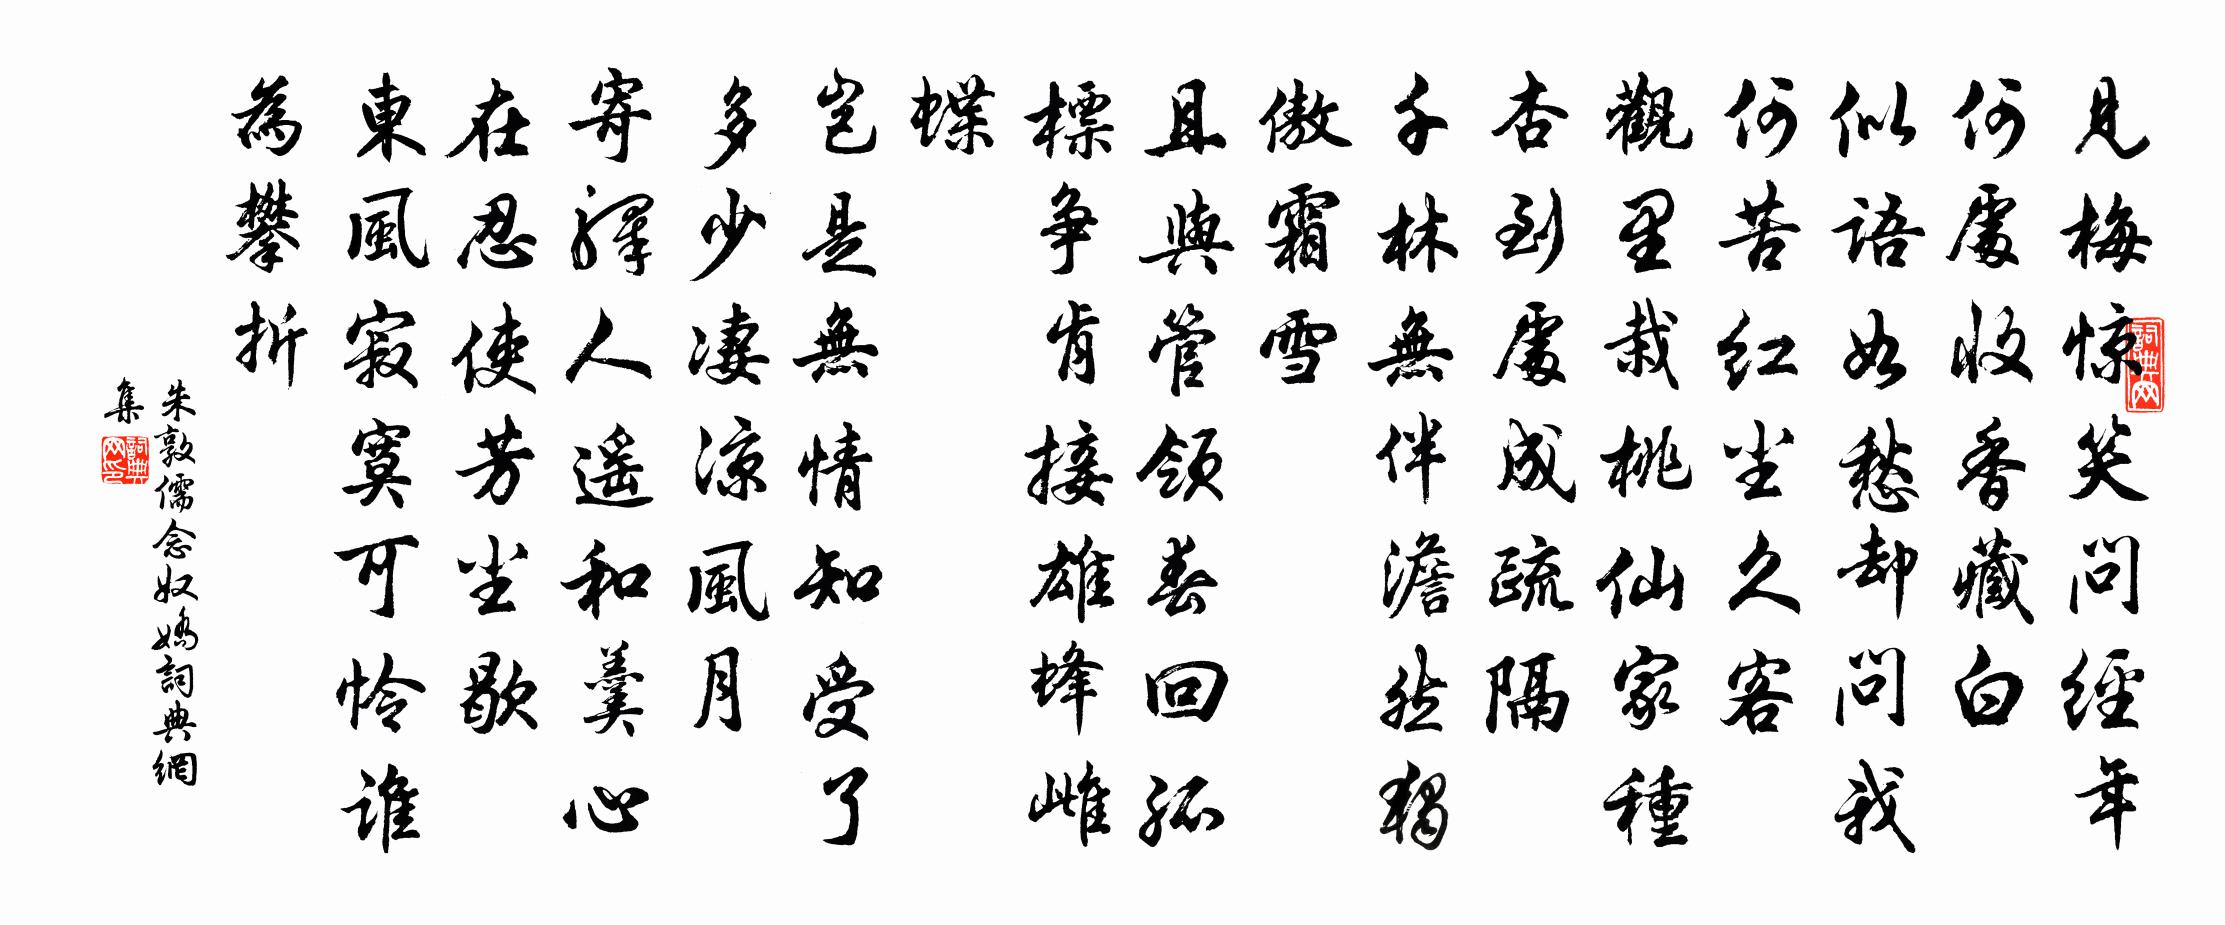 見梅惊笑問經年
何處收香藏白
似語如愁却問我
何苦红尘久客
觀里栽桃仙家種
杏到處成疏隔
千林無伴澹然獨
傲霜雪
且與管領春回孤
標争肯接雄蜂雌
蝶
岂是無情知受了
多少凄涼風月
寄驛人遥和羹心
在忍使芳尘歇
東風寂寞可怜誰
為攀折
朱敦儒念奴嬌詞典網
集
詞典网
詞典网印